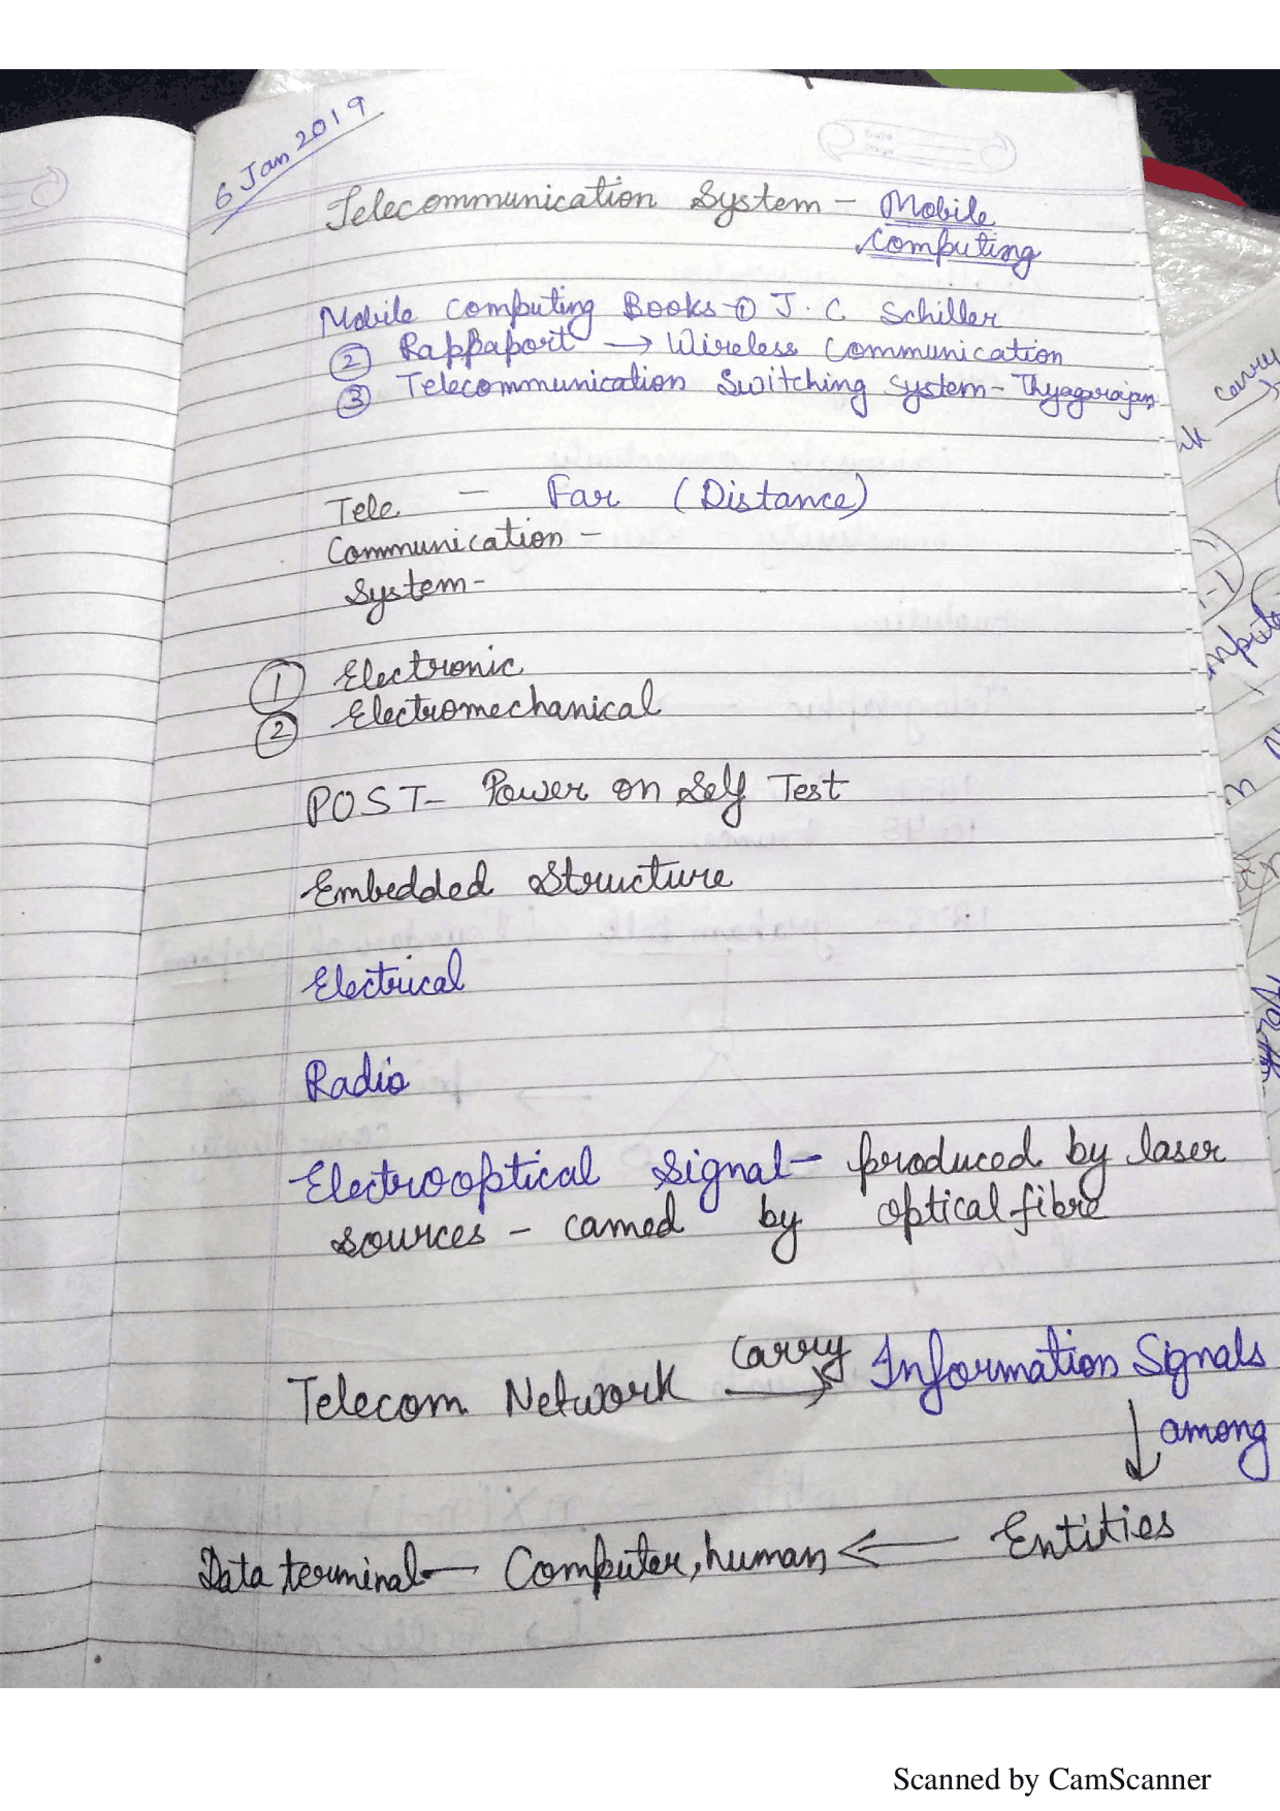 6 Jan 2019
Telecommunication System - Mobile
Computing
Mobile Computing Books - ① J. C Schiller
② Rappaport → Wireless Communication
③ Telecommunication Switching System - Thyagarajan
Tele - Far (Distance)
Communication -
System -
① Electronic
② Electromechanical
POST - Power on Self Test
Embedded Structure
Electrical
Radio
Electrooptical Signal - produced by laser
sources - carried by optical fibre
Telecom Network carry → Information Signals
↓ among
Data terminal - Computer, human ← Entities
Scanned by CamScanner